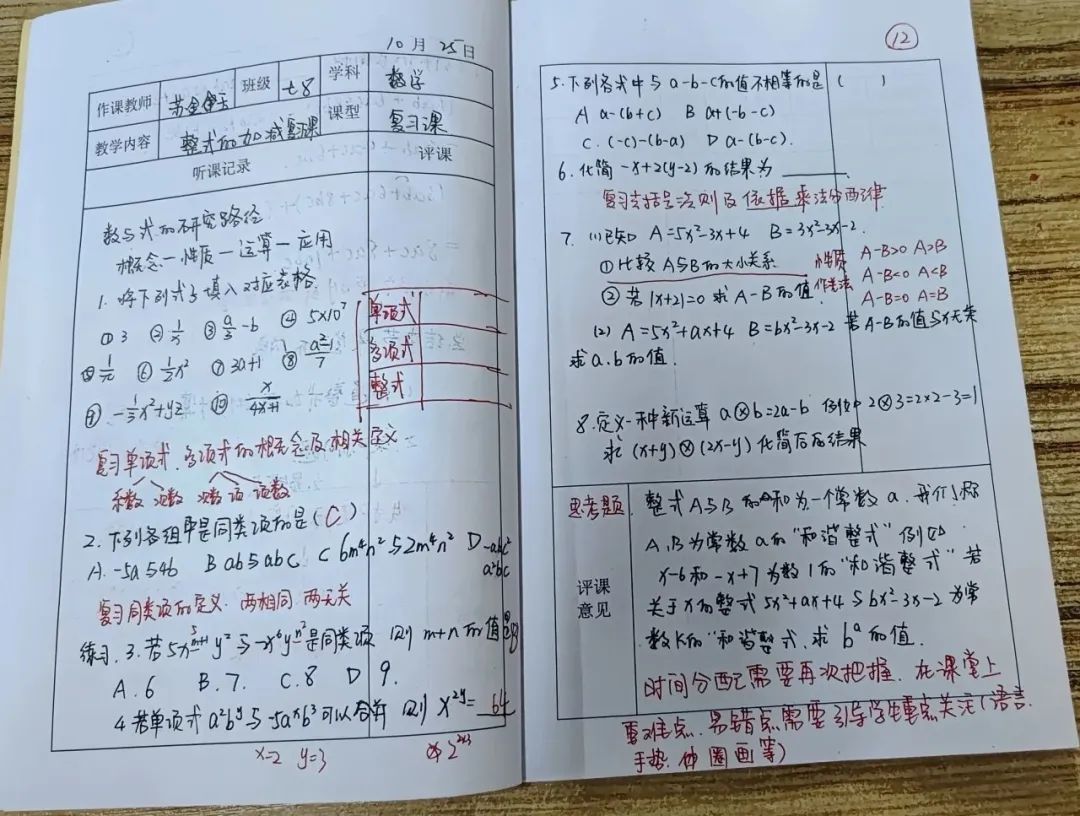 10月 25日
作课教师
班级 七8 学科 数学
教学内容 整式的加减复习课 课型 复习课
听课记录 评课
数与式的研究路径
概念一性质一运算一应用
1. 将下列式子填入对应表格
① 3 ③ a/3-b ④ 5×10⁷
⑥ ½x² ⑦ 3a+1 ⑧
⑨ -⅓x²+yz ⑩ x/4x+1
单项式
多项式
整式
复习单项式、多项式的概念及相关定义
系数 次数 次数 项 项数
2. 下列各组中是同类项的是(C)
A. -5a与4b B ab与abc C 6m⁴n²与2m⁴n² D -abc² a²bc
复习同类项的定义. 两相同 两无关
练习. 3. 若 是同类项 则 m+n 的值是
A. 6 B. 7. C. 8 D 9.
4 若单项式 a²bʸ与-5aˣb³可以合并 则 x²ʸ= 64
x=2 y=3
12
5. 下列各式中与 a-b-c的值不相等的是 ( )
A a-(b+c) B a+(-b-c)
C. (-c)-(b-a) D a-(b-c).
6. 化简 -x+2(y-2) 的结果为 ______.
复习去括号法则及依据乘法分配律
7. (1)已知 A=5x²-3x+4 B=3x²-3x-2.
①比较A与B的大小关系 性质 A-B>0 A>B
作差法 A-B<0 A<B
② 若 |x+2|=0 求 A-B 的值. A-B=0 A=B
(2) A=5x²+ax+4 B=bx²-3x-2 若A-B的值与x无关
求 a.b 的值.
8. 定义一种新运算 a⊗b=2a-b 例如 2⊗3=2×2-3=1
求 (x+y)⊗(2x-y) 化简后的结果
思考题. 整式A与B的和为一个常数 a. 我们称
A,B为常数a的“和谐整式” 例如
x-6和-x+7为数1的“和谐整式” 若
评课意见
关于x的整式 5x²+ax+4与bx²-3x-2为常
数K的“和谐整式, 求 bᵃ 的值.
时间分配需要再次把握. 在课堂上
重难点. 易错点需要引导学生重点关注(语言.
手势. 圈画等)